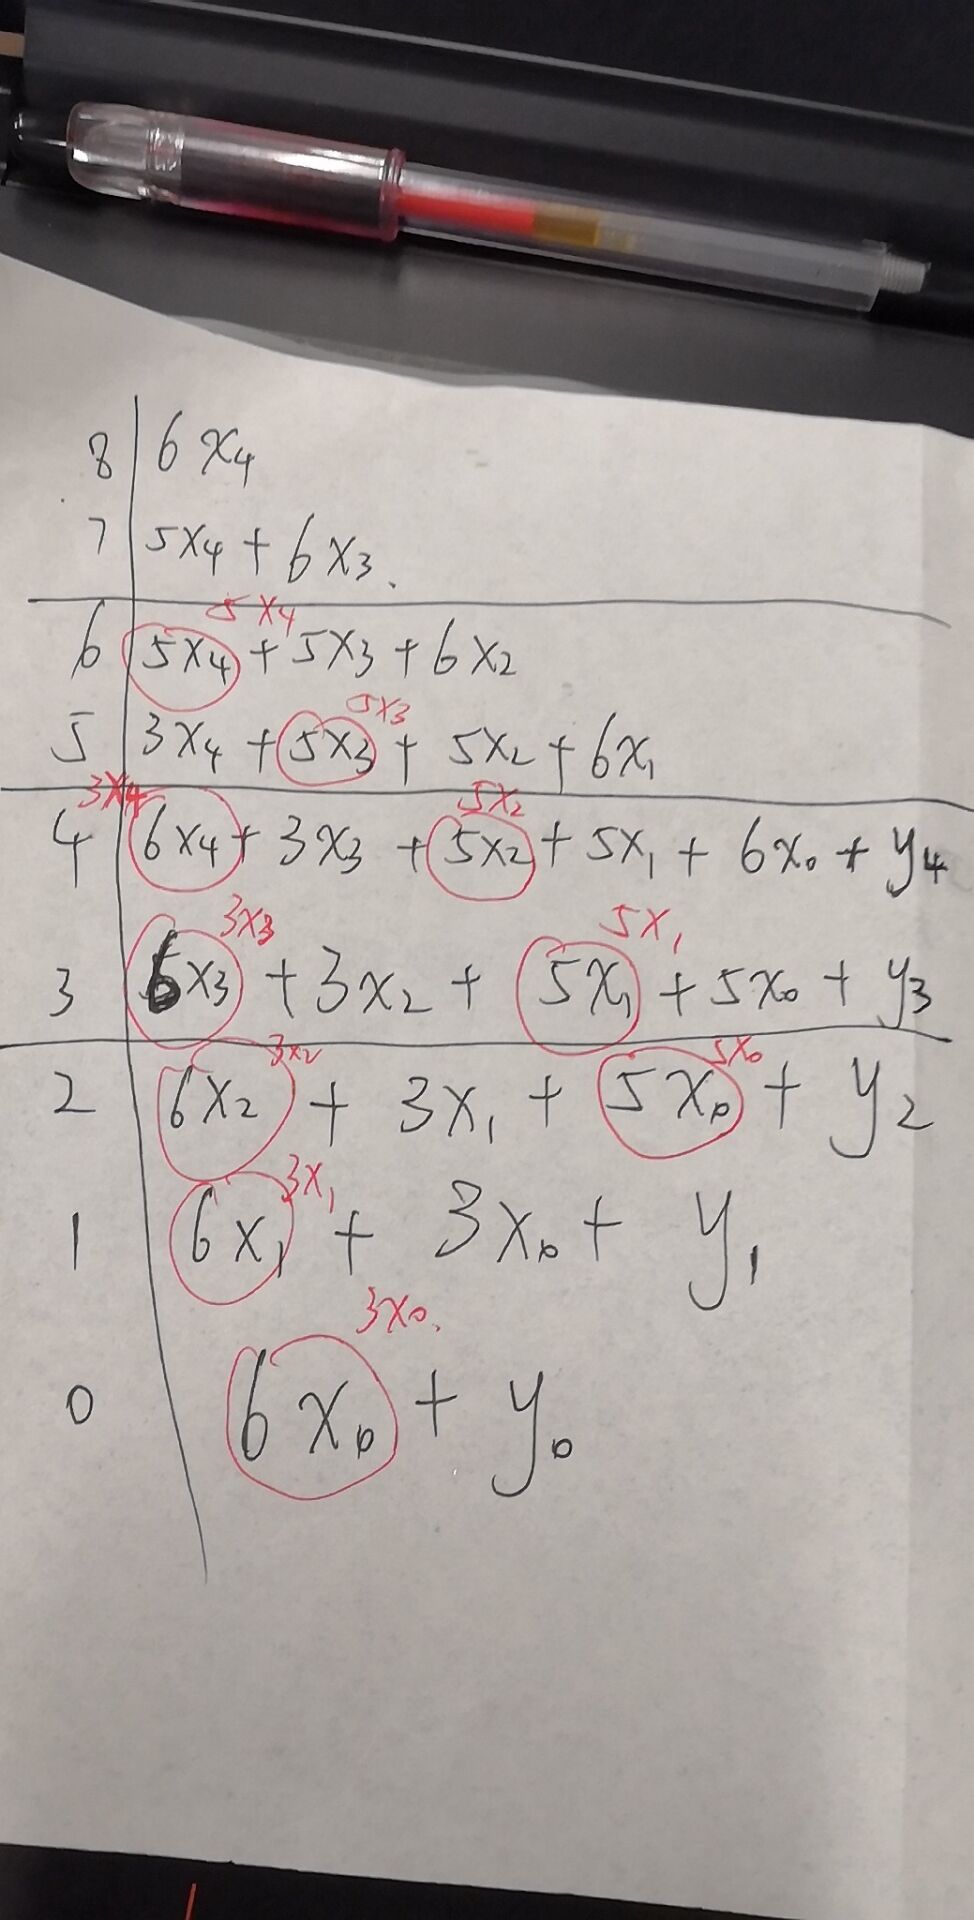 8 6x₄
7 5x₄ + 6x₃.
5x₄
6 5x₄ + 5x₃ + 6x₂
5x₃
5 3x₄ + 5x₃ + 5x₂ + 6x₁
3x₄ 5x₂
4 6x₄ + 3x₃ + 5x₂ + 5x₁ + 6x₀ + y₄
3x₃ 5x₁
3 6x₃ + 3x₂ + 5x₁ + 5x₀ + y₃
3x₂ 5x₀
2 6x₂ + 3x₁ + 5x₀ + y₂
3x₁
1 6x₁ + 3x₀ + y₁
3x₀.
0 6x₀ + y₀